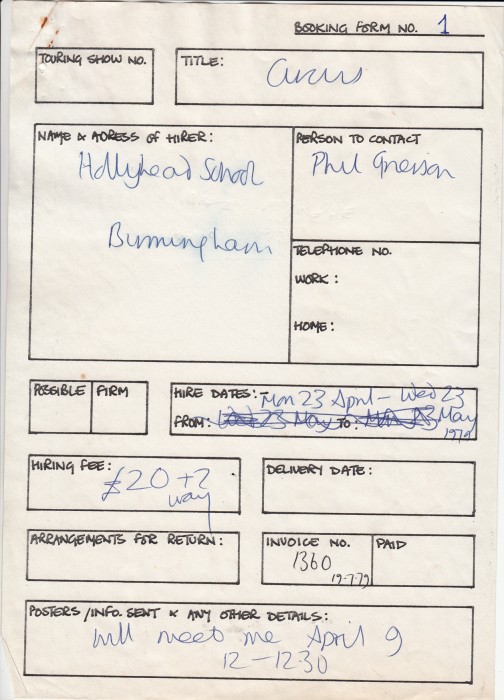 BOOKING FORM NO. 1
TOURING SHOW NO.
TITLE:
Circus
NAME & ADRESS of HIRER:
Hollyhead School
Birmingham
PERSON TO CONTACT
Phil Grierson
TELEPHONE NO.
WORK:
HOME:
POSSIBLE
FIRM
HIRE DATES:-
Mon 23 April - Wed 23
May
1979
FROM: Wed 23 May TO:
HIRING FEE:
£20 + 2
way
DELIVERY DATE:
ARRANGEMENTS FOR RETURN:
INVOICE NO.
1360
19-7-79
PAID
POSTERS / INFO. SENT & ANY OTHER DETAILS:
will meet me April 9
12 - 12.30